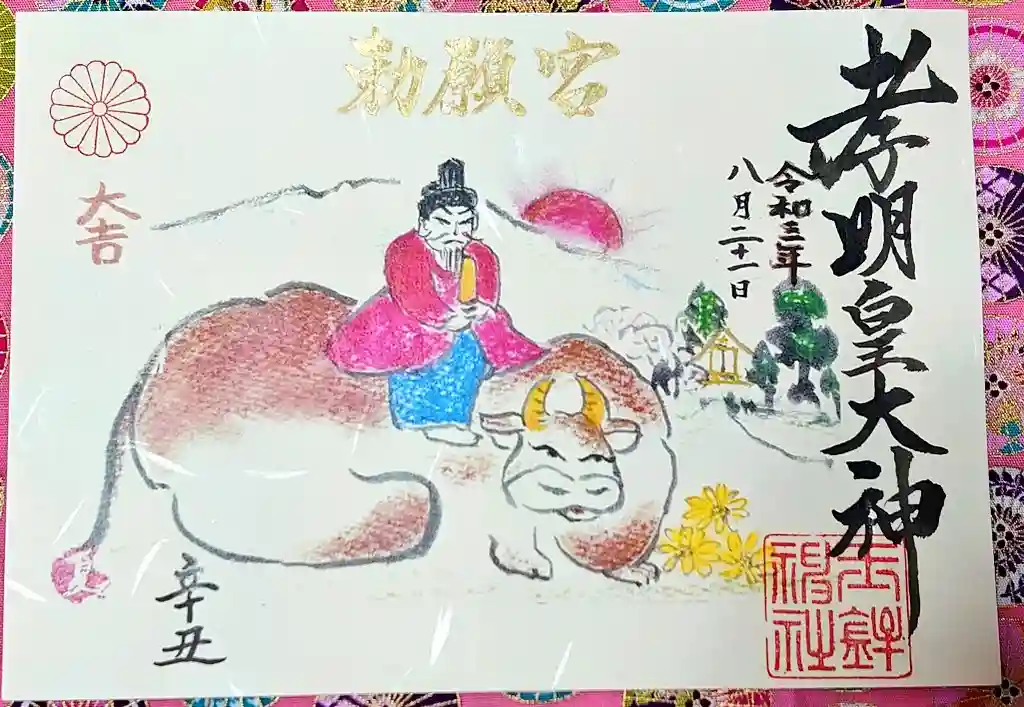 孝明皇大神
令和三年
八月二十一日
勅願宮
大吉
辛丑
玉鉾
神社